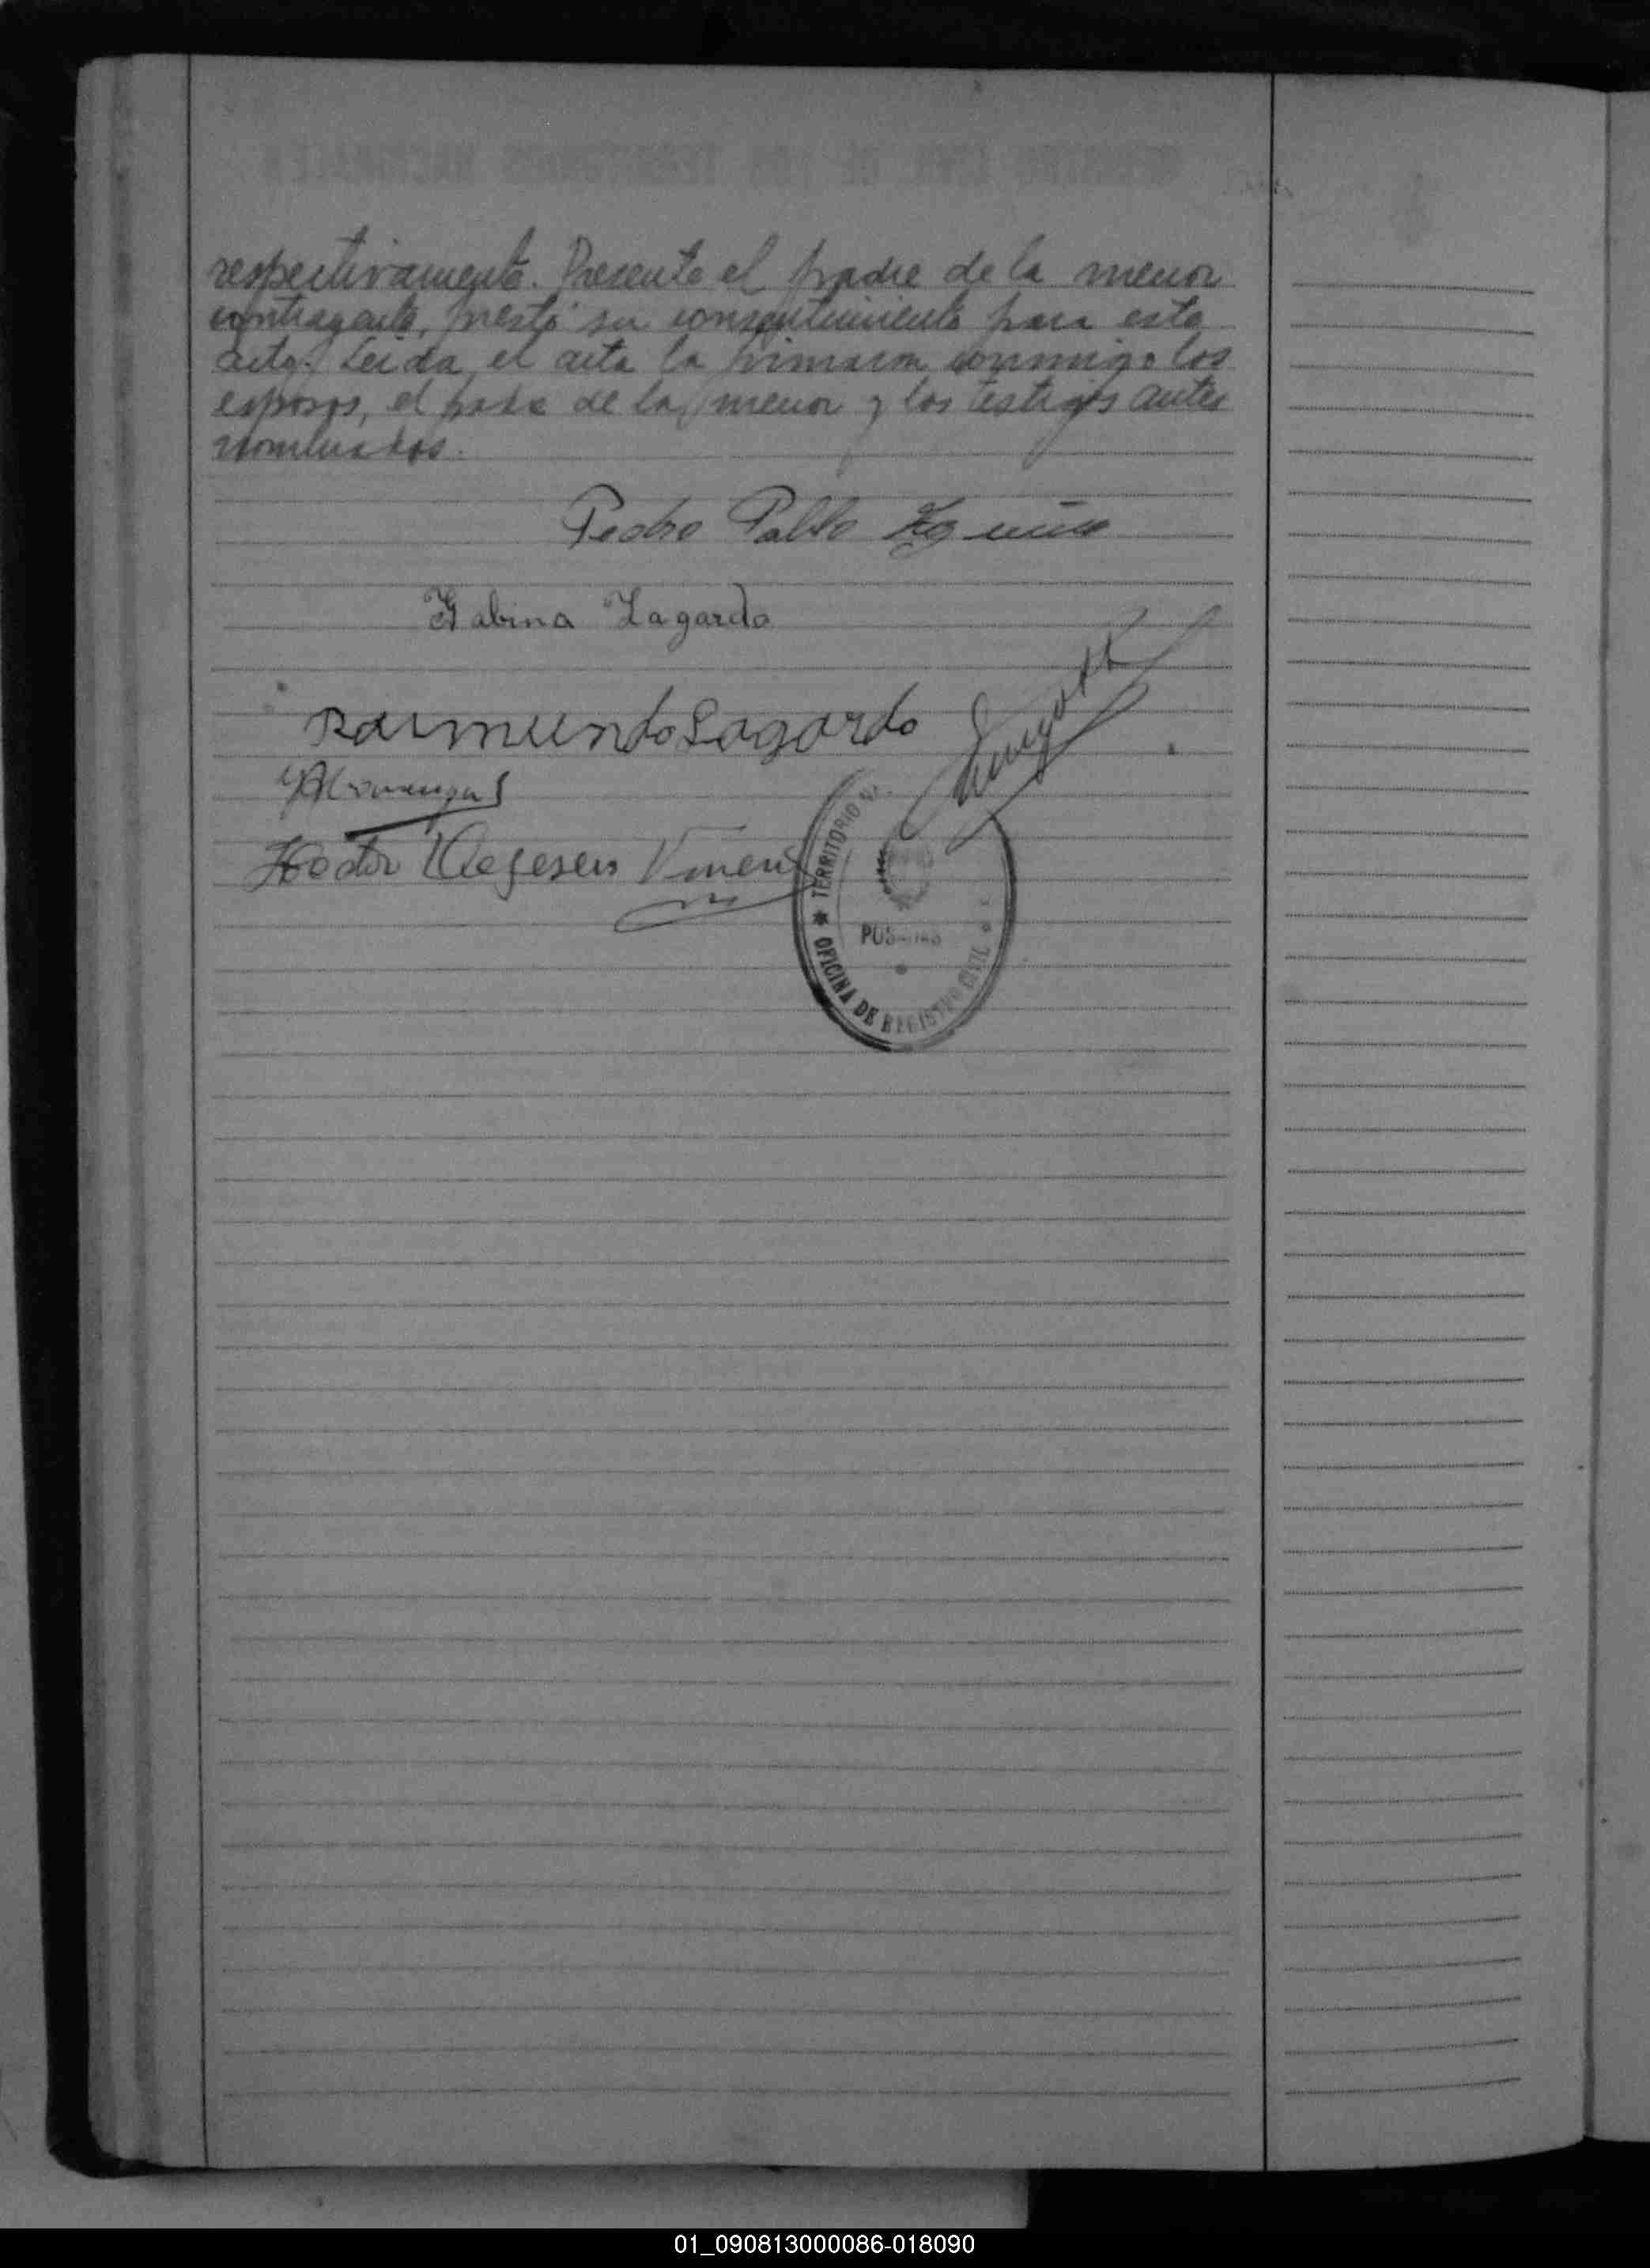 respectivamente. Presente el padre de la menor
contrayente, prestó su consentimiento para este
acto. Leida el acta la firmaron conmigo los
esposos, el padre de la menor y los testigos antes
nombrados.
Pedro Pablo
Gabina Lagardo
Raimundo Lagardo
Hector
TERRITORIO
POSADAS
OFICINA DE REGISTRO CIVIL
01_090813000086-018090